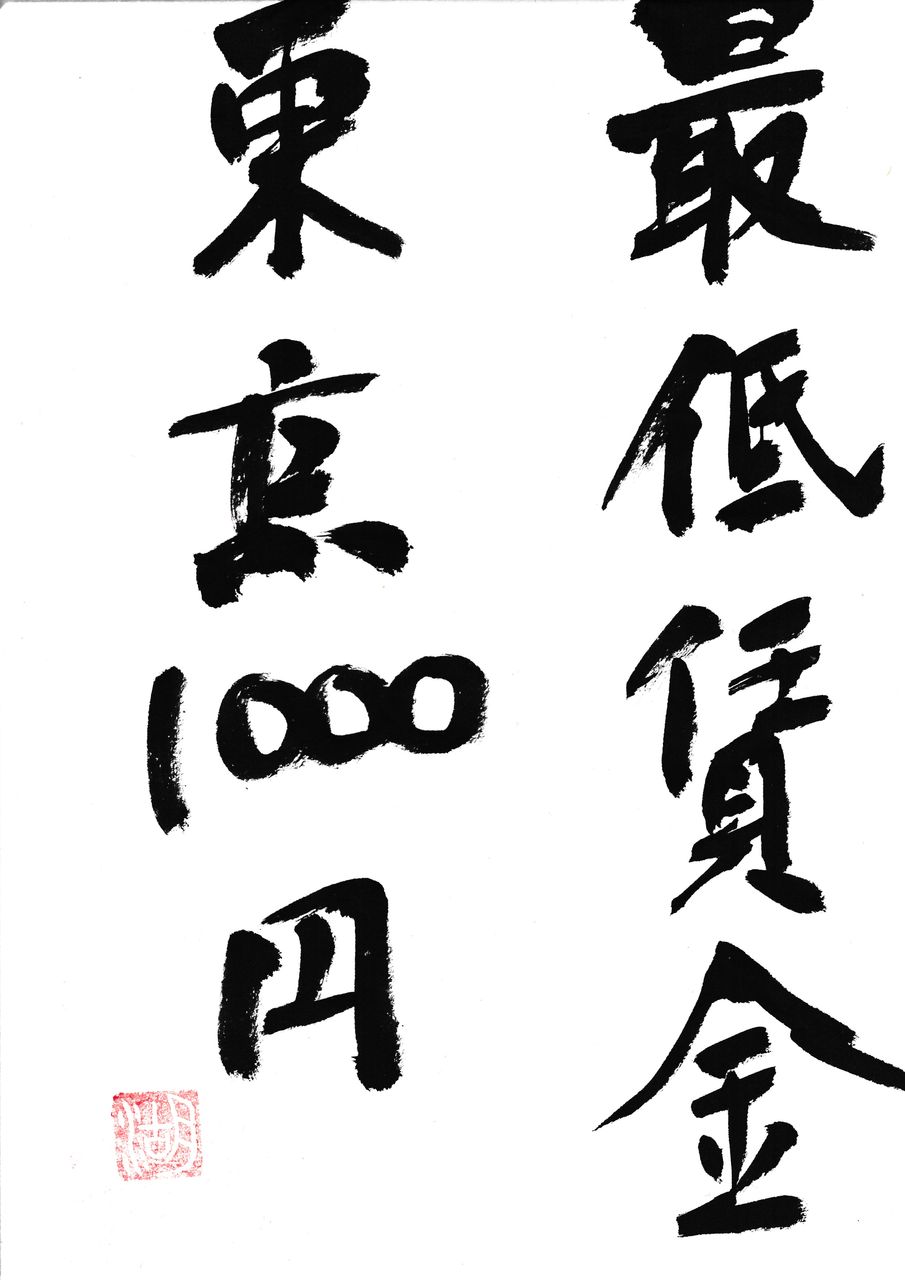 最低賃金
東京1000円
湖